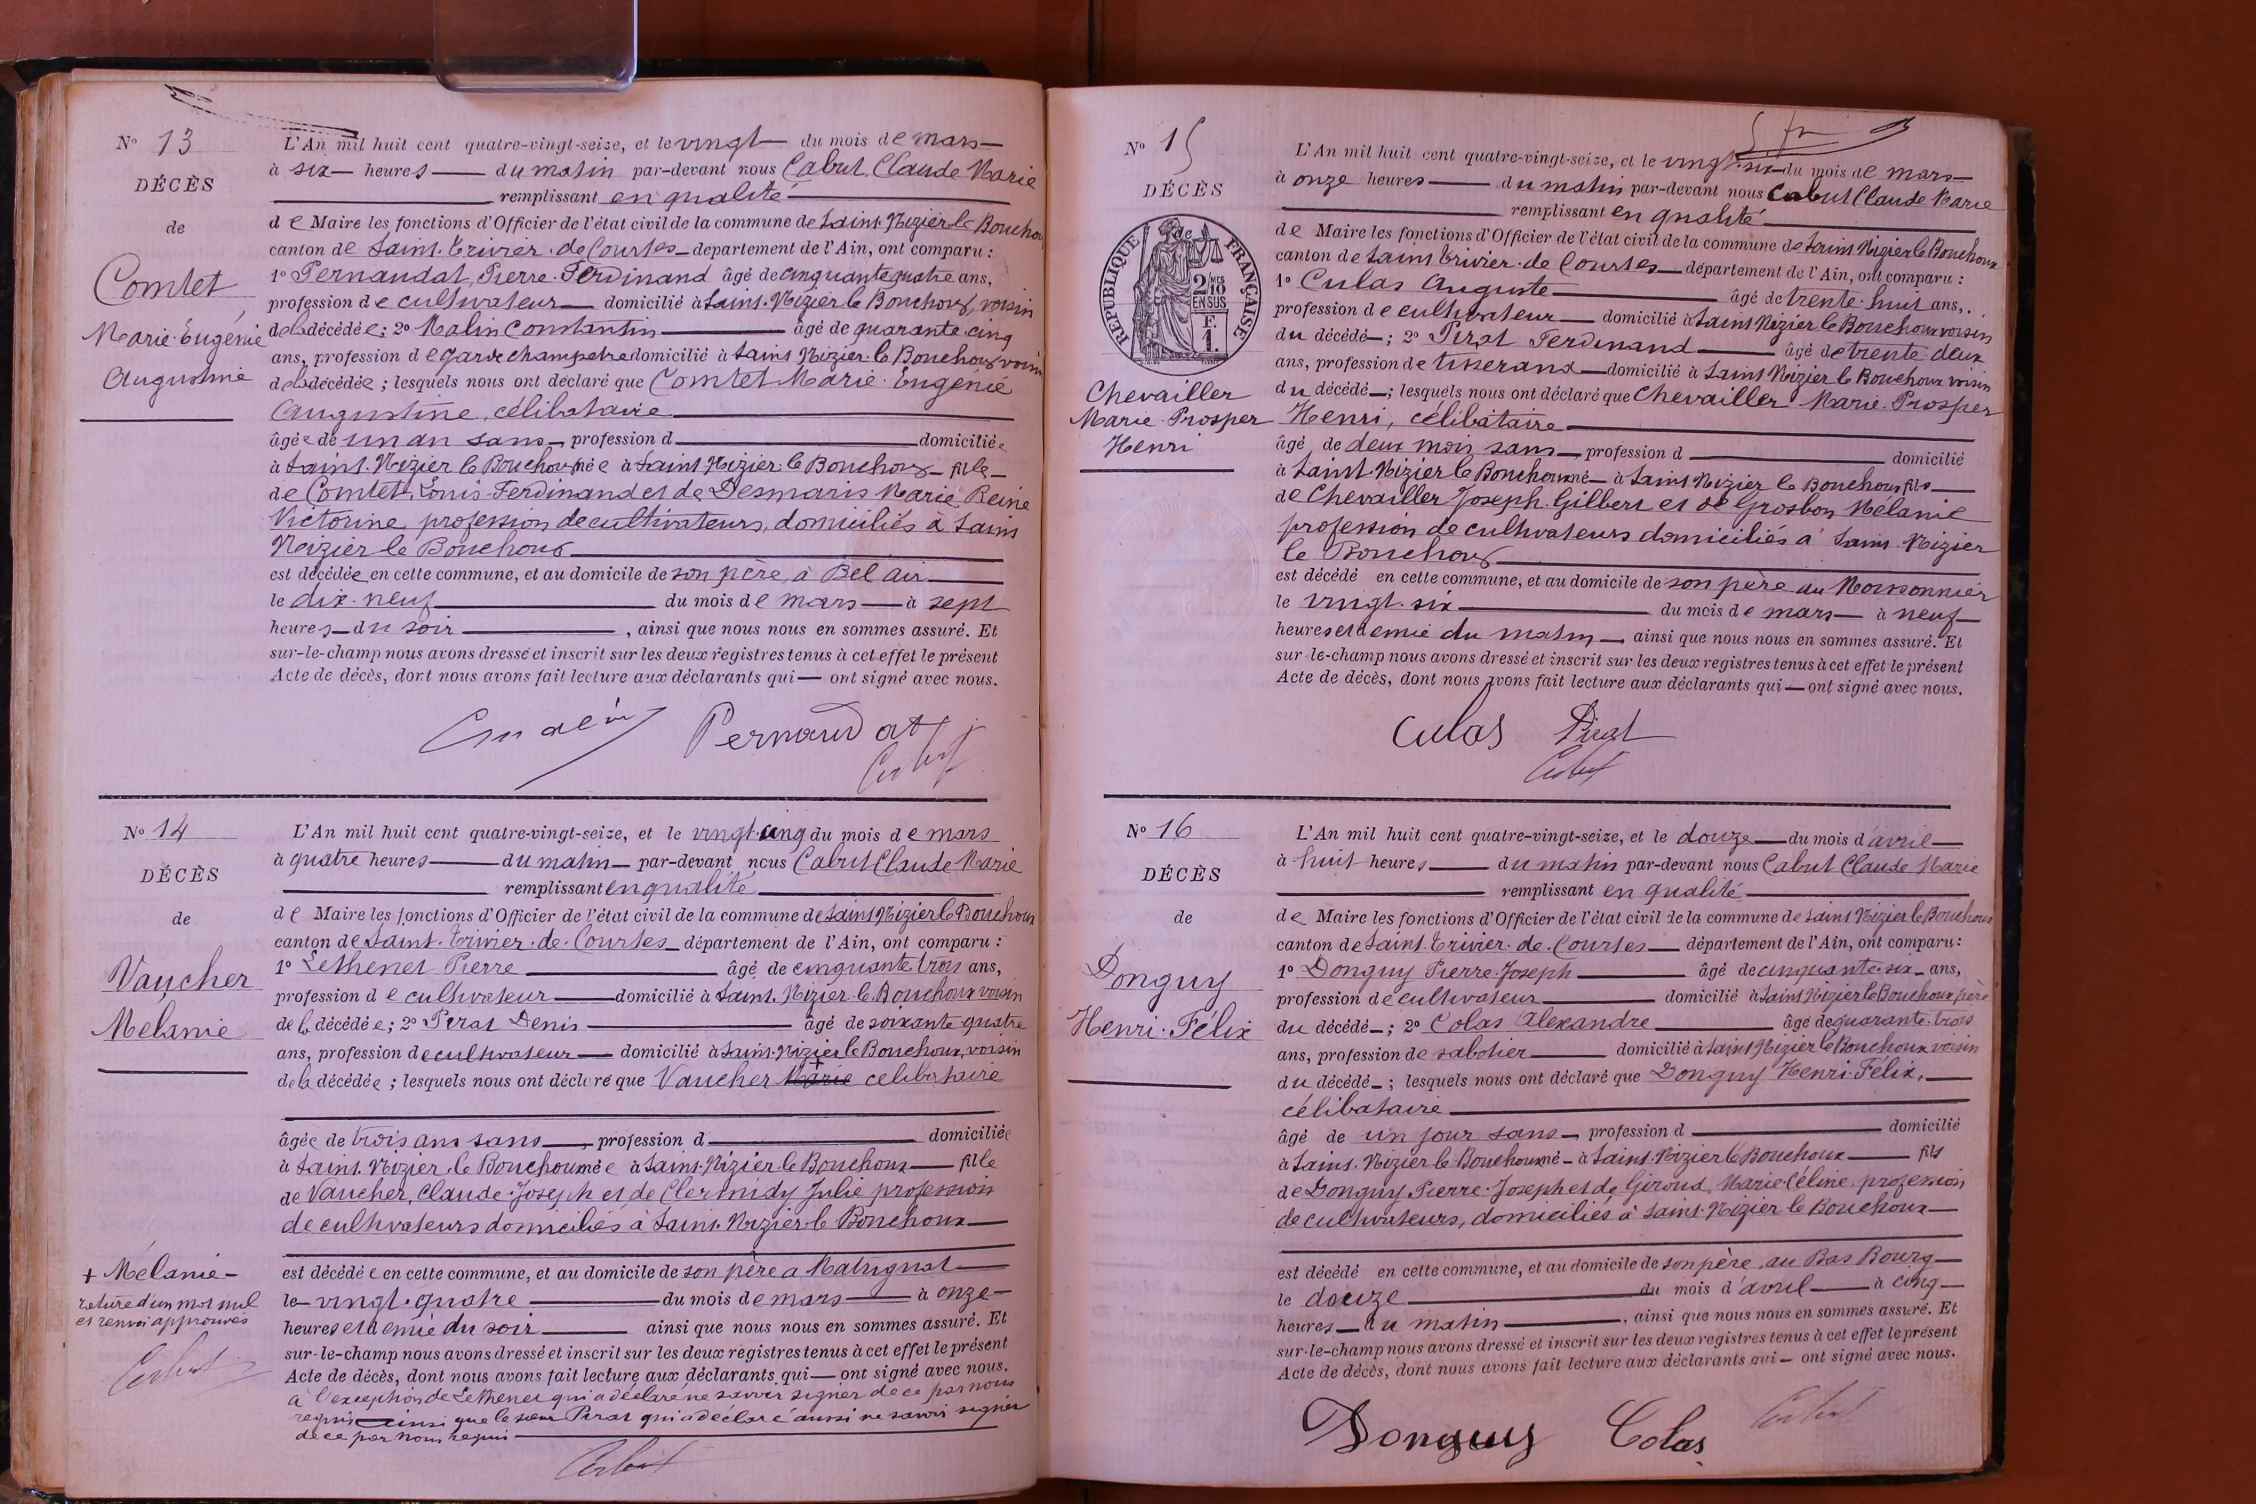 N° 13
DÉCÈS
de
Comtet
Marie-Eugénie
Augustine
L'An mil huit cent quatre-vingt-seize, et le vingt du mois de mars
à six heures du matin par-devant nous Cabut Claude Marie
remplissant en qualité
de Maire les fonctions d'Officier de l'état civil de la commune de Saint-Nizier le Bouchoux
canton de Saint-Trivier-de-Courtes département de l'Ain, ont comparu :
1° Pernaudat, Pierre-Ferdinand âgé de cinquante quatre ans,
profession de cultivateur domicilié à Saint-Nizier le Bouchoux, voisin
de la décédée ; 2° Malin Constantin âgé de quarante cinq
ans, profession de garde champetre domicilié à Saint Nizier-le Bouchoux voisin
de la décédée ; lesquels nous ont déclaré que Comtet Marie-Eugénie
Augustine, célibataire
âgée de un an sans profession d domiciliée
à Saint-Nizier le Bouchoux née à Saint Nizier-le Bouchoux fille
de Comtet Louis-Ferdinand et de Desmaris Marie Reine
Victorine profession de cultivateurs, domiciliés à Saint
Nizier le Bouchoux
est décédée en cette commune, et au domicile de son père, à Bel air
le dix-neuf du mois de mars à sept
heures du soir , ainsi que nous nous en sommes assuré. Et
sur-le-champ nous avons dressé et inscrit sur les deux registres tenus à cet effet le présent
Acte de décès, dont nous avons fait lecture aux déclarants qui ont signé avec nous.
Pernaudat
Cabut
N° 14
DÉCÈS
de
Vaucher
Mélanie
L'An mil huit cent quatre-vingt-seize, et le vingt-cinq du mois de mars
à quatre heures du matin par-devant nous Cabut Claude Marie
remplissant en qualité
de Maire les fonctions d'Officier de l'état civil de la commune de Saint Nizier le Bouchoux
canton de Saint-Trivier-de-Courtes département de l'Ain, ont comparu :
1° Lethenet Pierre âgé de cinquante trois ans,
profession de cultivateur domicilié à Saint-Nizier-le Bouchoux voisin
de la décédée ; 2° Perat Denis âgé de soixante quatre
ans, profession de cultivateur domicilié à Saint-Nizier le Bouchoux, voisin
de la décédée ; lesquels nous ont déclaré que Vaucher Marie + celibataire
âgée de trois ans sans profession d domiciliée
à Saint-Nizier-le Bouchoux née à Saint-Nizier-le Bouchoux fille
de Vaucher, Claude-Joseph et de Clermidy Julie profession
de cultivateurs domiciliés à Saint-Nizier-le Bouchoux
est décédée en cette commune, et au domicile de son père a Matrignat
le vingt-quatre du mois de mars à onze
heures et demie du soir ainsi que nous nous en sommes assuré. Et
sur-le-champ nous avons dressé et inscrit sur les deux registres tenus à cet effet le présent
Acte de décès, dont nous avons fait lecture aux déclarants qui ont signé avec nous.
à l'exception de Lethenet qui a déclaré ne savoir signer de ce par nous
requis ainsi que le sieur Perat qui a déclaré aussi ne savoir signer
de ce par nous requis
Cabut
+ Mélanie
rature d'un mot nul
et renvoi approuvés
Cabut
N° 15
DÉCÈS
de
RÉPUBLIQUE FRANÇAISE
2/10 EN SUS
F. 1.
Chevailler
Marie-Prosper
Henri
L'An mil huit cent quatre-vingt-seize, et le vingt-six du mois de mars
à onze heures du matin par-devant nous Cabut Claude Marie
remplissant en qualité
de Maire les fonctions d'Officier de l'état civil de la commune de Saint Nizier le Bouchoux
canton de Saint Trivier-de Courtes département de l'Ain, ont comparu :
1° Culas Auguste âgé de trente-huit ans,
profession de cultivateur domicilié à Saint Nizier le Bouchoux voisin
du décédé ; 2° Pirat Ferdinand âgé de trente-deux
ans, profession de tisserand domicilié à Saint Nizier le Bouchoux voisin
du décédé ; lesquels nous ont déclaré que Chevailler Marie-Prosper
Henri, célibataire
âgé de deux mois sans profession d domicilié
à Saint-Nizier le Bouchoux né à Saint Nizier le Bouchoux fils
de Chevailler Joseph-Gilbert et de Grosbon Mélanie
profession de cultivateurs domiciliés à Saint-Nizier
le Bouchoux
est décédé en cette commune, et au domicile de son père au Moissonnier
le vingt-six du mois de mars à neuf
heures et demie du matin ainsi que nous nous en sommes assuré. Et
sur-le-champ nous avons dressé et inscrit sur les deux registres tenus à cet effet le présent
Acte de décès, dont nous avons fait lecture aux déclarants qui ont signé avec nous.
Culas Pirat
Cabut
N° 16
DÉCÈS
de
Donguy
Henri-Félix
L'An mil huit cent quatre-vingt-seize, et le douze du mois d'avril
à huit heures du matin par-devant nous Cabut Claude Marie
remplissant en qualité
de Maire les fonctions d'Officier de l'état civil de la commune de Saint Nizier le Bouchoux
canton de Saint-Trivier-de-Courtes département de l'Ain, ont comparu :
1° Donguy Pierre-Joseph âgé de cinquante-six ans,
profession de cultivateur domicilié à Saint Nizier le Bouchoux père
du décédé ; 2° Colas Alexandre âgé de quarante-trois
ans, profession de sabotier domicilié à Saint Nizier le Bouchoux voisin
du décédé ; lesquels nous ont déclaré que Donguy Henri-Félix,
célibataire
âgé de un jour sans profession d domicilié
à Saint-Nizier le Bouchoux né à Saint-Nizier le Bouchoux fils
de Donguy Pierre-Joseph et de Giroud Marie-Céline profession
de cultivateurs, domiciliés à Saint-Nizier le Bouchoux
est décédé en cette commune, et au domicile de son père, au Bas Bourg
le douze du mois d'avril à cinq
heures du matin , ainsi que nous nous en sommes assuré. Et
sur-le-champ nous avons dressé et inscrit sur les deux registres tenus à cet effet le présent
Acte de décès, dont nous avons fait lecture aux déclarants qui ont signé avec nous.
Donguy Colas Cabut